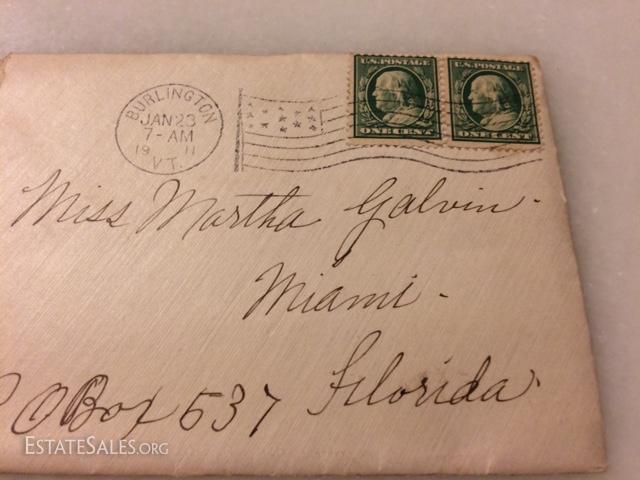 BURLINGTON
JAN 23
7-AM
19 11
VT.
U.S. POSTAGE
ONE CENT
U.S. POSTAGE
ONE CENT
Miss Martha Galvin.
Miami.
Florida.
P O Box 537
ESTATESALES.ORG